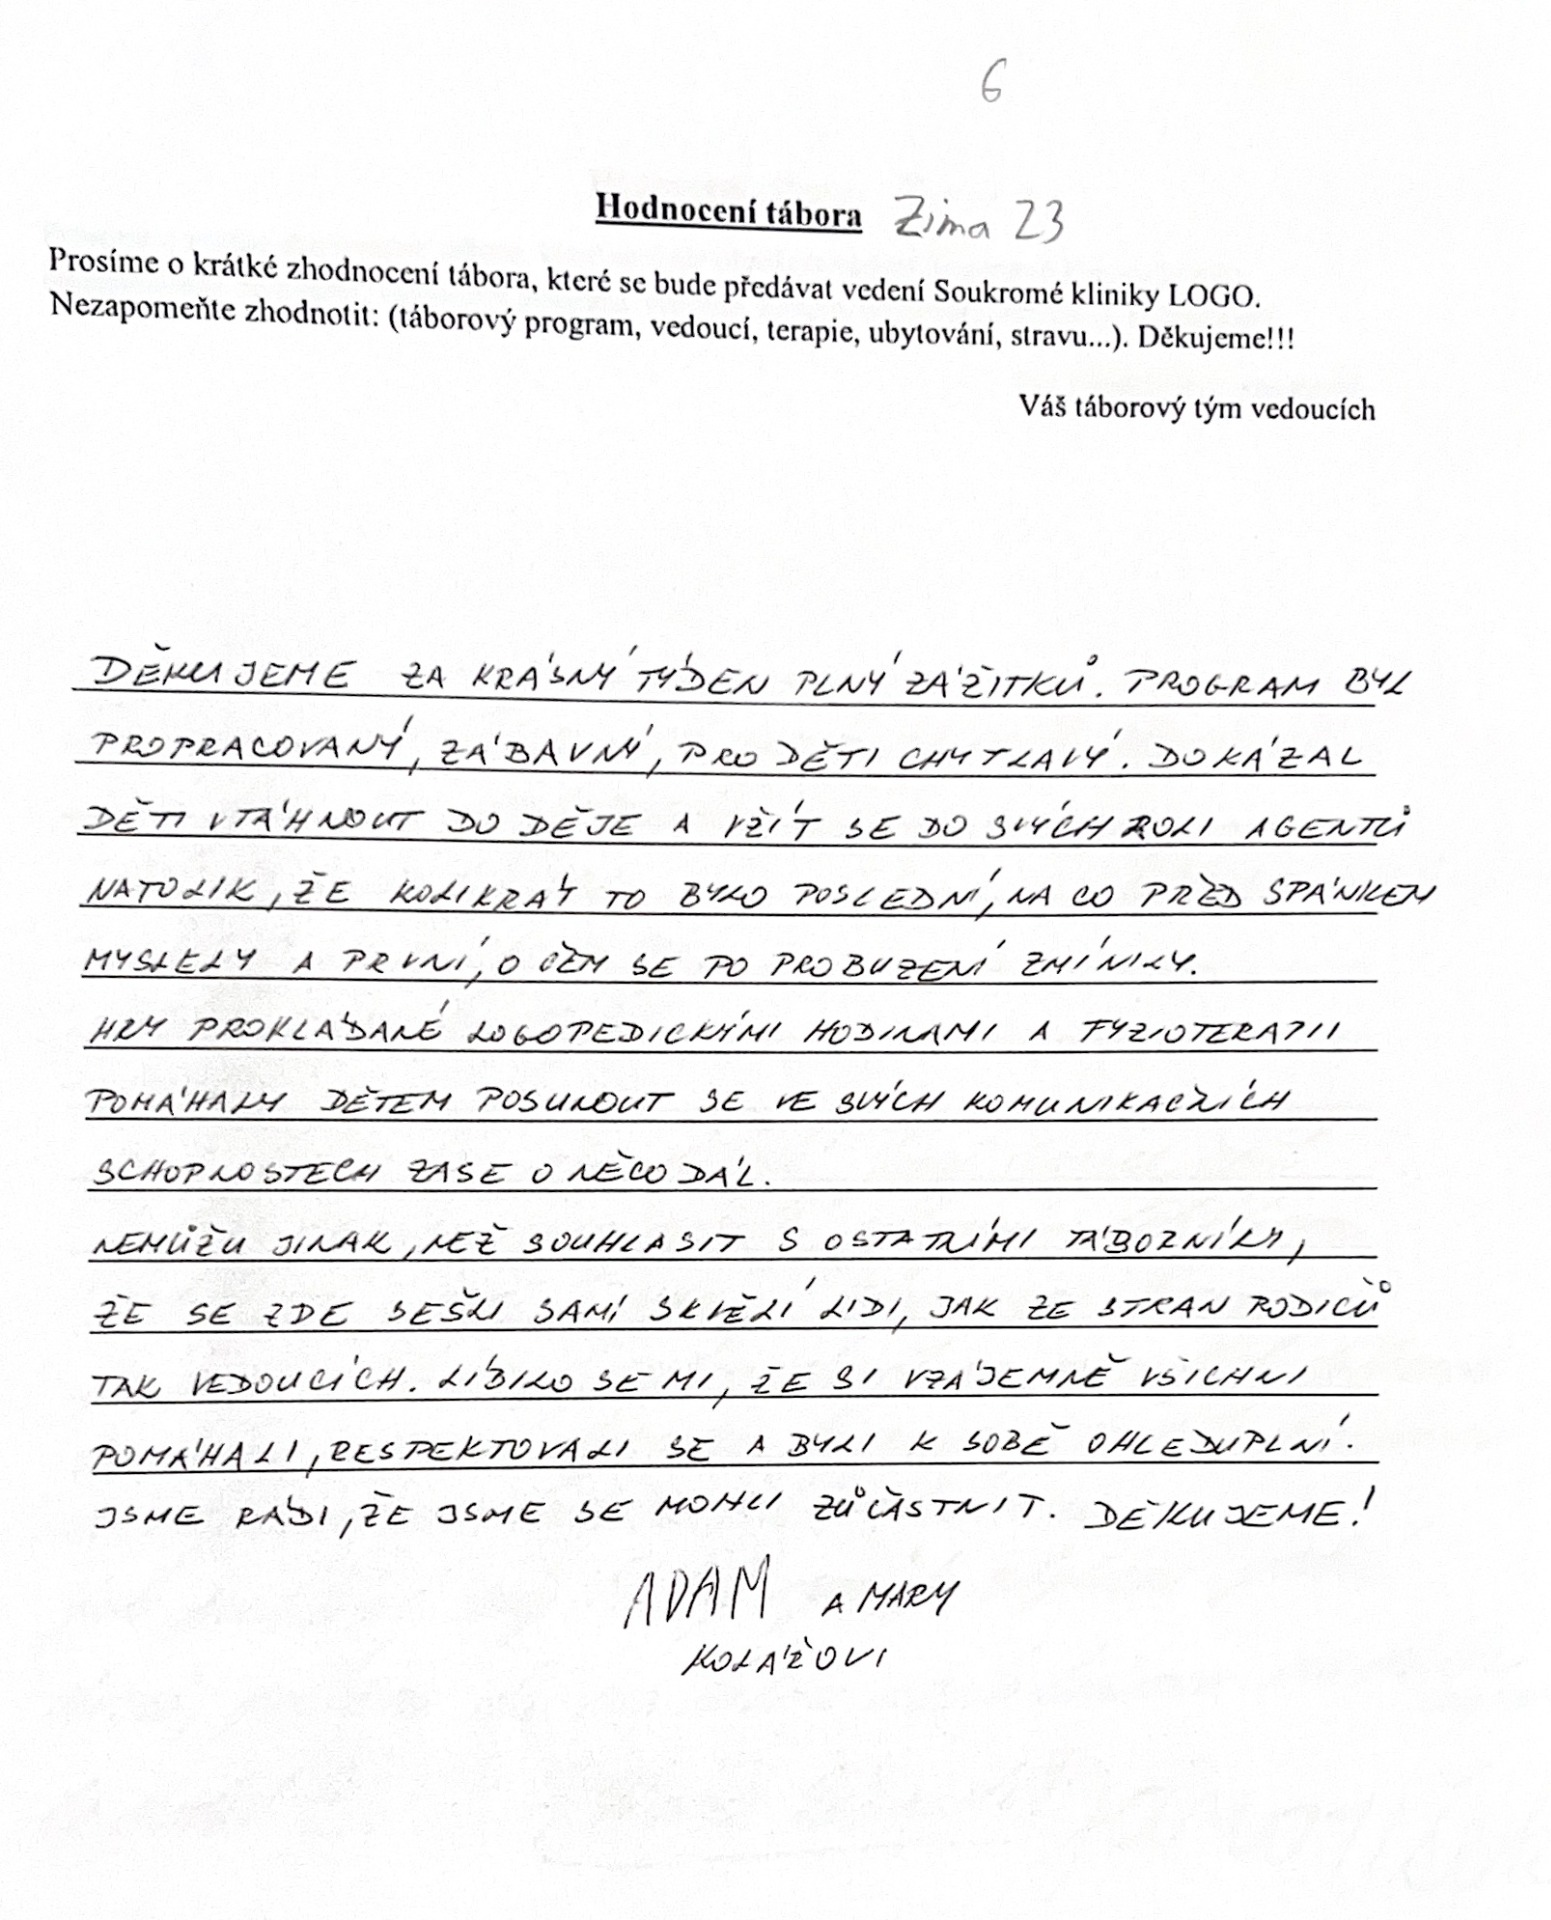 6
Hodnocení tábora Zima 23
Prosíme o krátké zhodnocení tábora, které se bude předávat vedení Soukromé kliniky LOGO.
Nezapomeňte zhodnotit: (táborový program, vedoucí, terapie, ubytování, stravu...). Děkujeme!!!
Váš táborový tým vedoucích
DĚKUJEME ZA KRÁSNÝ TÝDEN PLNÝ ZÁŽITKŮ. PROGRAM BYL
PROPRACOVANÝ, ZÁBAVNÝ, PRO DĚTI CHYTLAVÝ. DOKÁZAL
DĚTI VTÁHNOUT DO DĚJE A VŽÍT SE DO SVÝCH ROLI AGENTŮ
NATOLIK, ŽE KOLIKRÁT TO BYLO POSLEDNÍ, NA CO PŘED SPÁNKEM
MYSLELY A PRVNÍ, O ČEM SE PO PROBUZENÍ ZMÍNILY.
HRY PROKLÁDANÉ LOGOPEDICKÝMI HODINAMI A FYZIOTERAPII
POMÁHALY DĚTEM POSUNOUT SE VE SVÝCH KOMUNIKAČNÍCH
SCHOPNOSTECH ZASE O NĚCO DÁL.
NEMŮŽU JINAK, NEŽ SOUHLASIT S OSTATNÍMI TÁBORNÍKY,
ŽE SE ZDE SEŠLI SAMÍ SKVĚLÍ LIDI, JAK ZE STRAN RODIČŮ
TAK VEDOUCÍCH. LÍBILO SE MI, ŽE SI VZÁJEMNĚ VŠICHNI
POMÁHALI, RESPEKTOVALI SE A BYLI K SOBĚ OHLEDUPLNÍ.
JSME RÁDI, ŽE JSME SE MOHLI ZŮČASTNIT. DĚKUJEME!
ADAM A MARY
KOLÁŽOVI